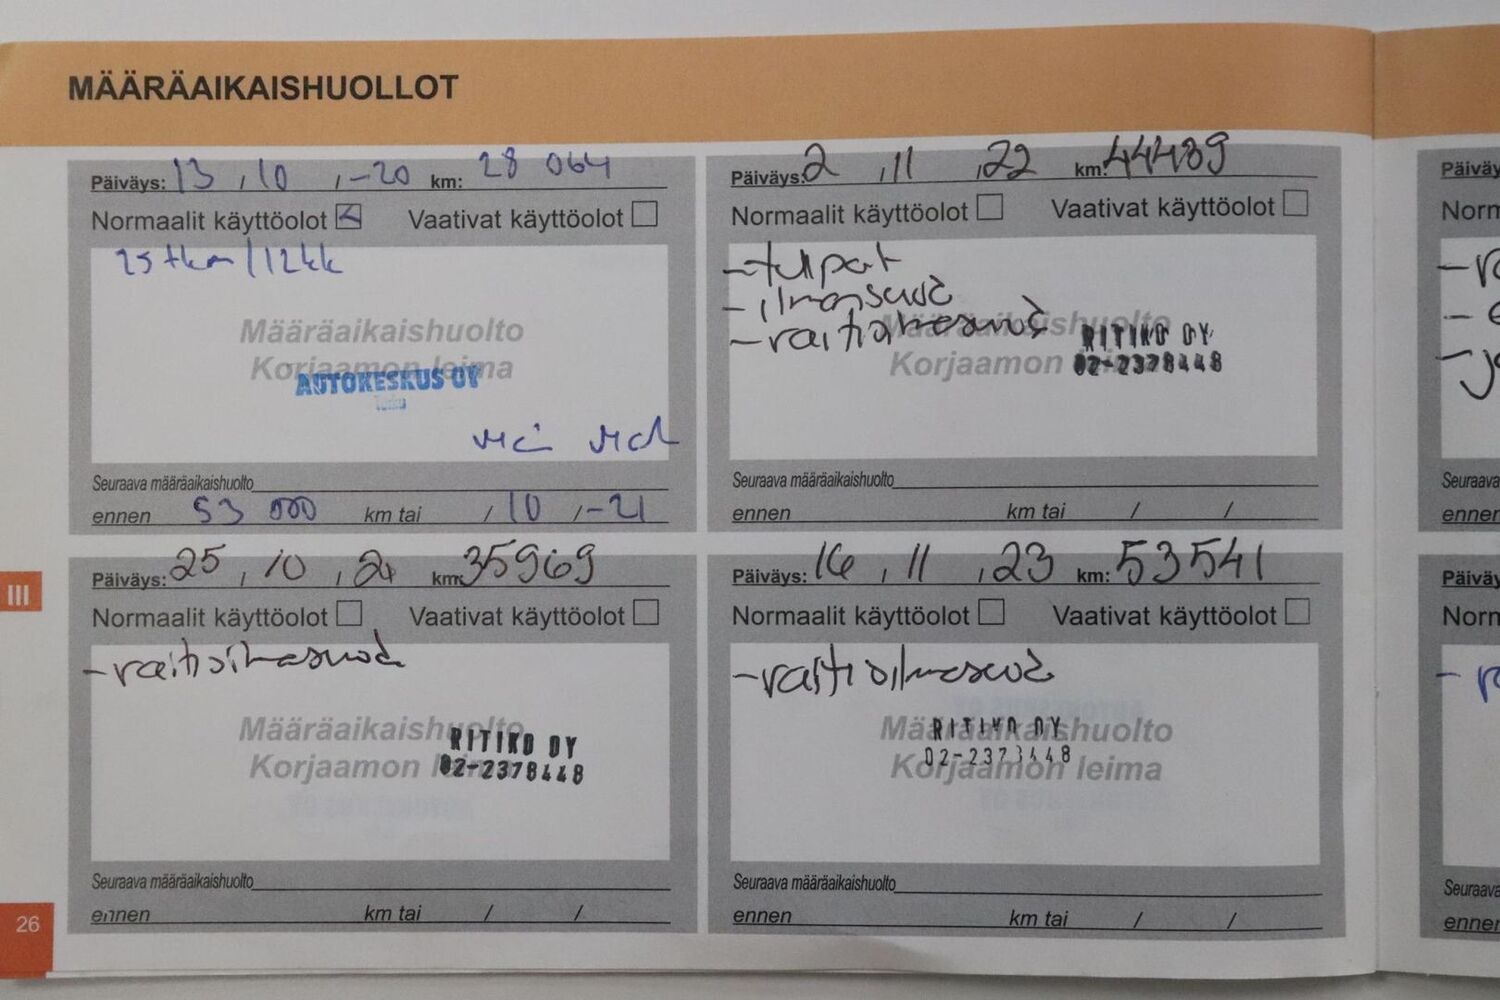 MÄÄRÄAIKAISHUOLLOT
Päiväys: 13 , 10 , -20 km: 28 064
Normaalit käyttöolot Vaativat käyttöolot
25 tkm/12kk
Määräaikaishuolto
Korjaamon leima
AUTOKESKUS OY
Turku
Seuraava määräaikaishuolto
ennen 53 000 km tai / 10 / -21
Päiväys: 25 , 10 , 21 km: 35969
Normaalit käyttöolot Vaativat käyttöolot
- raitisilmasuod
Määräaikaishuolto
Korjaamon leima
RITIKO OY
02-2378448
Seuraava määräaikaishuolto
ennen km tai / /
Päiväys: 2 , 11 , 22 km: 44489
Normaalit käyttöolot Vaativat käyttöolot
- tulpat
- ilmansuod
- raitisilmasuod
Määräaikaishuolto
Korjaamon leima
RITIKO OY
02-2378448
Seuraava määräaikaishuolto
ennen km tai / /
Päiväys: 16 , 11 , 23 km: 53541
Normaalit käyttöolot Vaativat käyttöolot
- raitisilmasuod
Määräaikaishuolto
Korjaamon leima
RITIKO OY
02-2378448
Seuraava määräaikaishuolto
ennen km tai / /
III
26
Päiväy
Norm
Seuraava
ennen
Päiväy
Norm
Seuraava
ennen